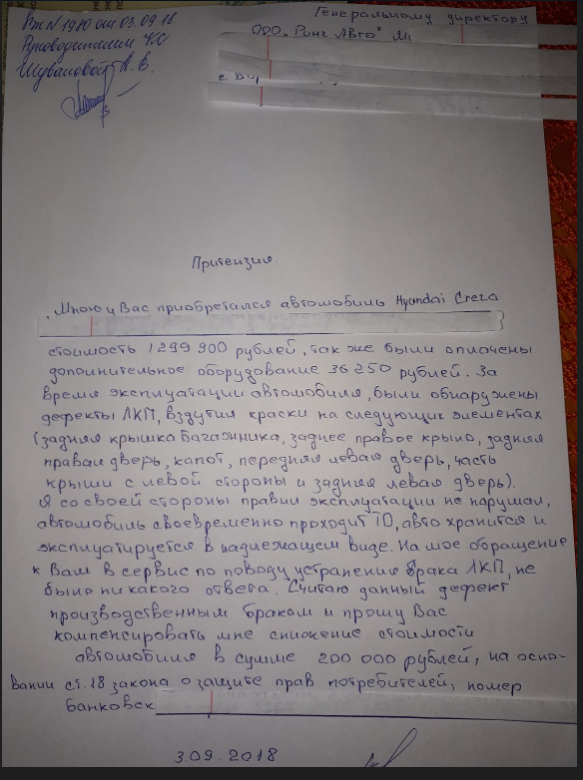 Вх N 1980 от 03.09.18
Руководителем КС
Шуваловой А. Е.
Генеральному директору
ООО "Ринг Авто"
Притензия
Мною у Вас приобретался автомобиль Hyundai Creta
стоимость 1299 900 рублей, так же были оплачены
дополнительное оборудование 36 250 рублей. За
время эксплуатации автомобиля, были обнаружены
дефекты ЛКП, вздутия краски на следующих элементах
(задняя крышка багажника, заднее правое крыло, задняя
правая дверь, капот, передняя левая дверь, часть
крыши с левой стороны и задняя левая дверь).
Я со своей стороны правил эксплуатации не нарушал,
автомобиль своевременно проходит ТО, авто хранится и
эксплуатируется в надлежащем виде. На мое обращение
к Вам в сервис по поводу устранения брака ЛКП, не
было никакого ответа. Считаю данный дефект
производственным браком и прошу Вас
компенсировать мне снижение стоимости
автомобиля в сумме 200 000 рублей, на осно-
вании ст. 18 закона о защите прав потребителей, номер
банковск
3.09.2018